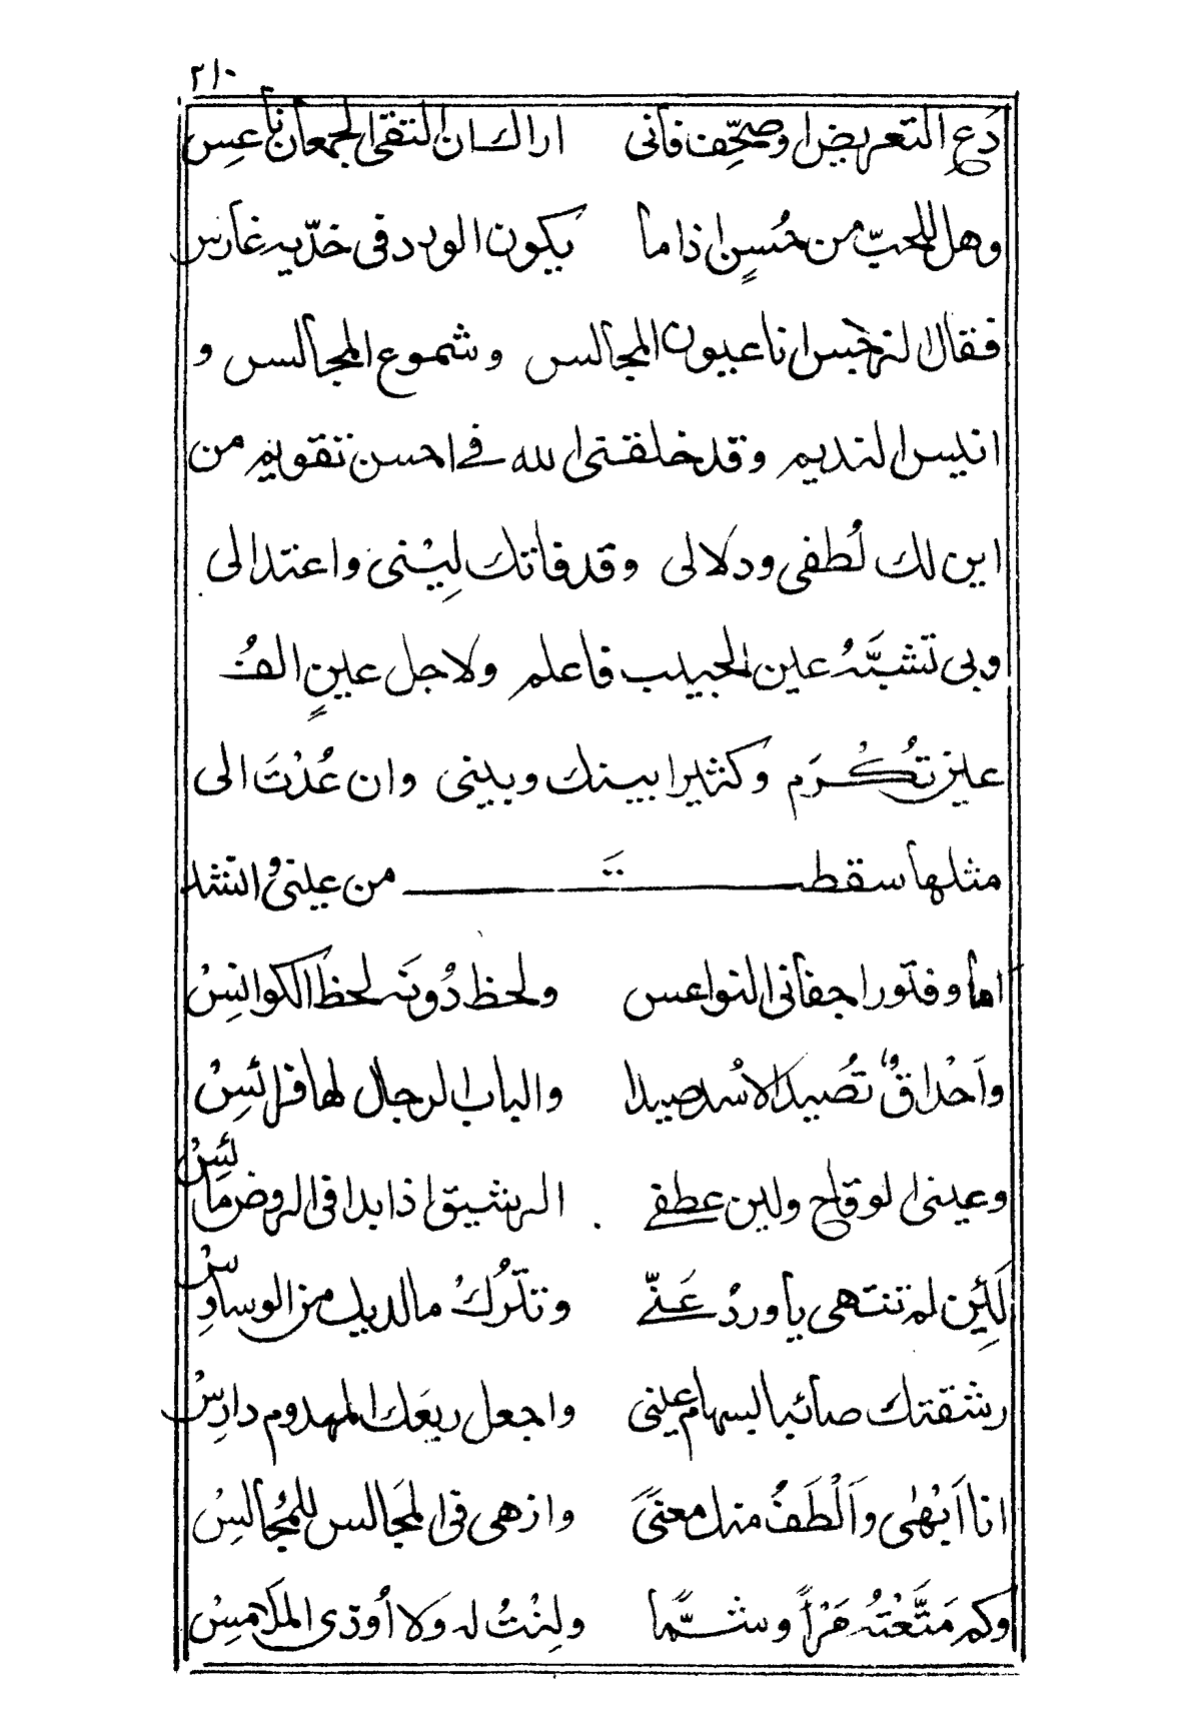 ٢١٠
دَع التعريض او صحّف فانى اراك ان التقى الجمعان ناعس
وهل للحبّ من حُسنٍ اذا ما يكون الورد فى خدّيه غارس
فقال النرجس انا عيون المجالس وشموع المجالس و
انيس النديم وقد خلقنى الله فى احسن تقويم من
اين لك لُطفى ودلالى وقد فاتك لِيْنى واعتدالى
وبى تشبَّهُ عين الحبيب فاعلم ولاجل عينٍ الفُ
عين تُكْرَم وكثيرا بينك وبينى وان عُدْتَ الى
مثلها سقطتَ من عينىْ وانشد
اما وفتور اجفانى النواعس ولحظ دُونَه لحظ الكوانِسْ
وَاَحْداقٌ تصُيد الاسْد صيدا والباب الرجال لها فرائسْ
وعينى الوقاح ولين عطفى الرشيق اذا بدا فى الروض مائسْ
لَئِن لم تنتهى ياورْد عَنّى وتتّرُكْ مالديك من الوساوِسْ
رشقتك صائبا بسهام عينى واجعل ربعَك المهدوم دارِسْ
انا اَبْهٰى واَلْطَفُ منك معنىً وازهى فى المَجالس للمُجالسْ
وكم مَتَّعْتُه مَرْاً وشمًّا ولِنْتُ له وَلا اُوذى المَلامِسْ